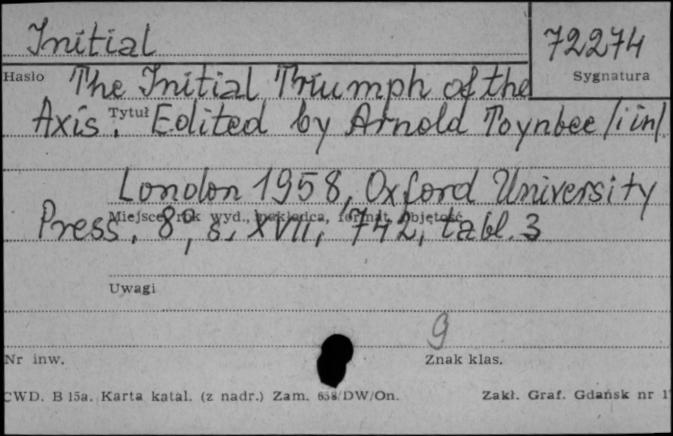 Initial
72274
Hasło
Sygnatura
The Initial Triumph of the
Tytuł
Axis. Edited by Arnold Toynbee /i in/.
London 1958, Oxford University
Miejsce, rok wyd., nakładca, format, objętość
Press, 8°, s. XVII, 742, tabl. 3
Uwagi
9
Nr inw.
Znak klas.
CWD. B 15a. Karta katal. (z nadr.) Zam. 658/DW/On.
Zakł. Graf. Gdańsk nr 1